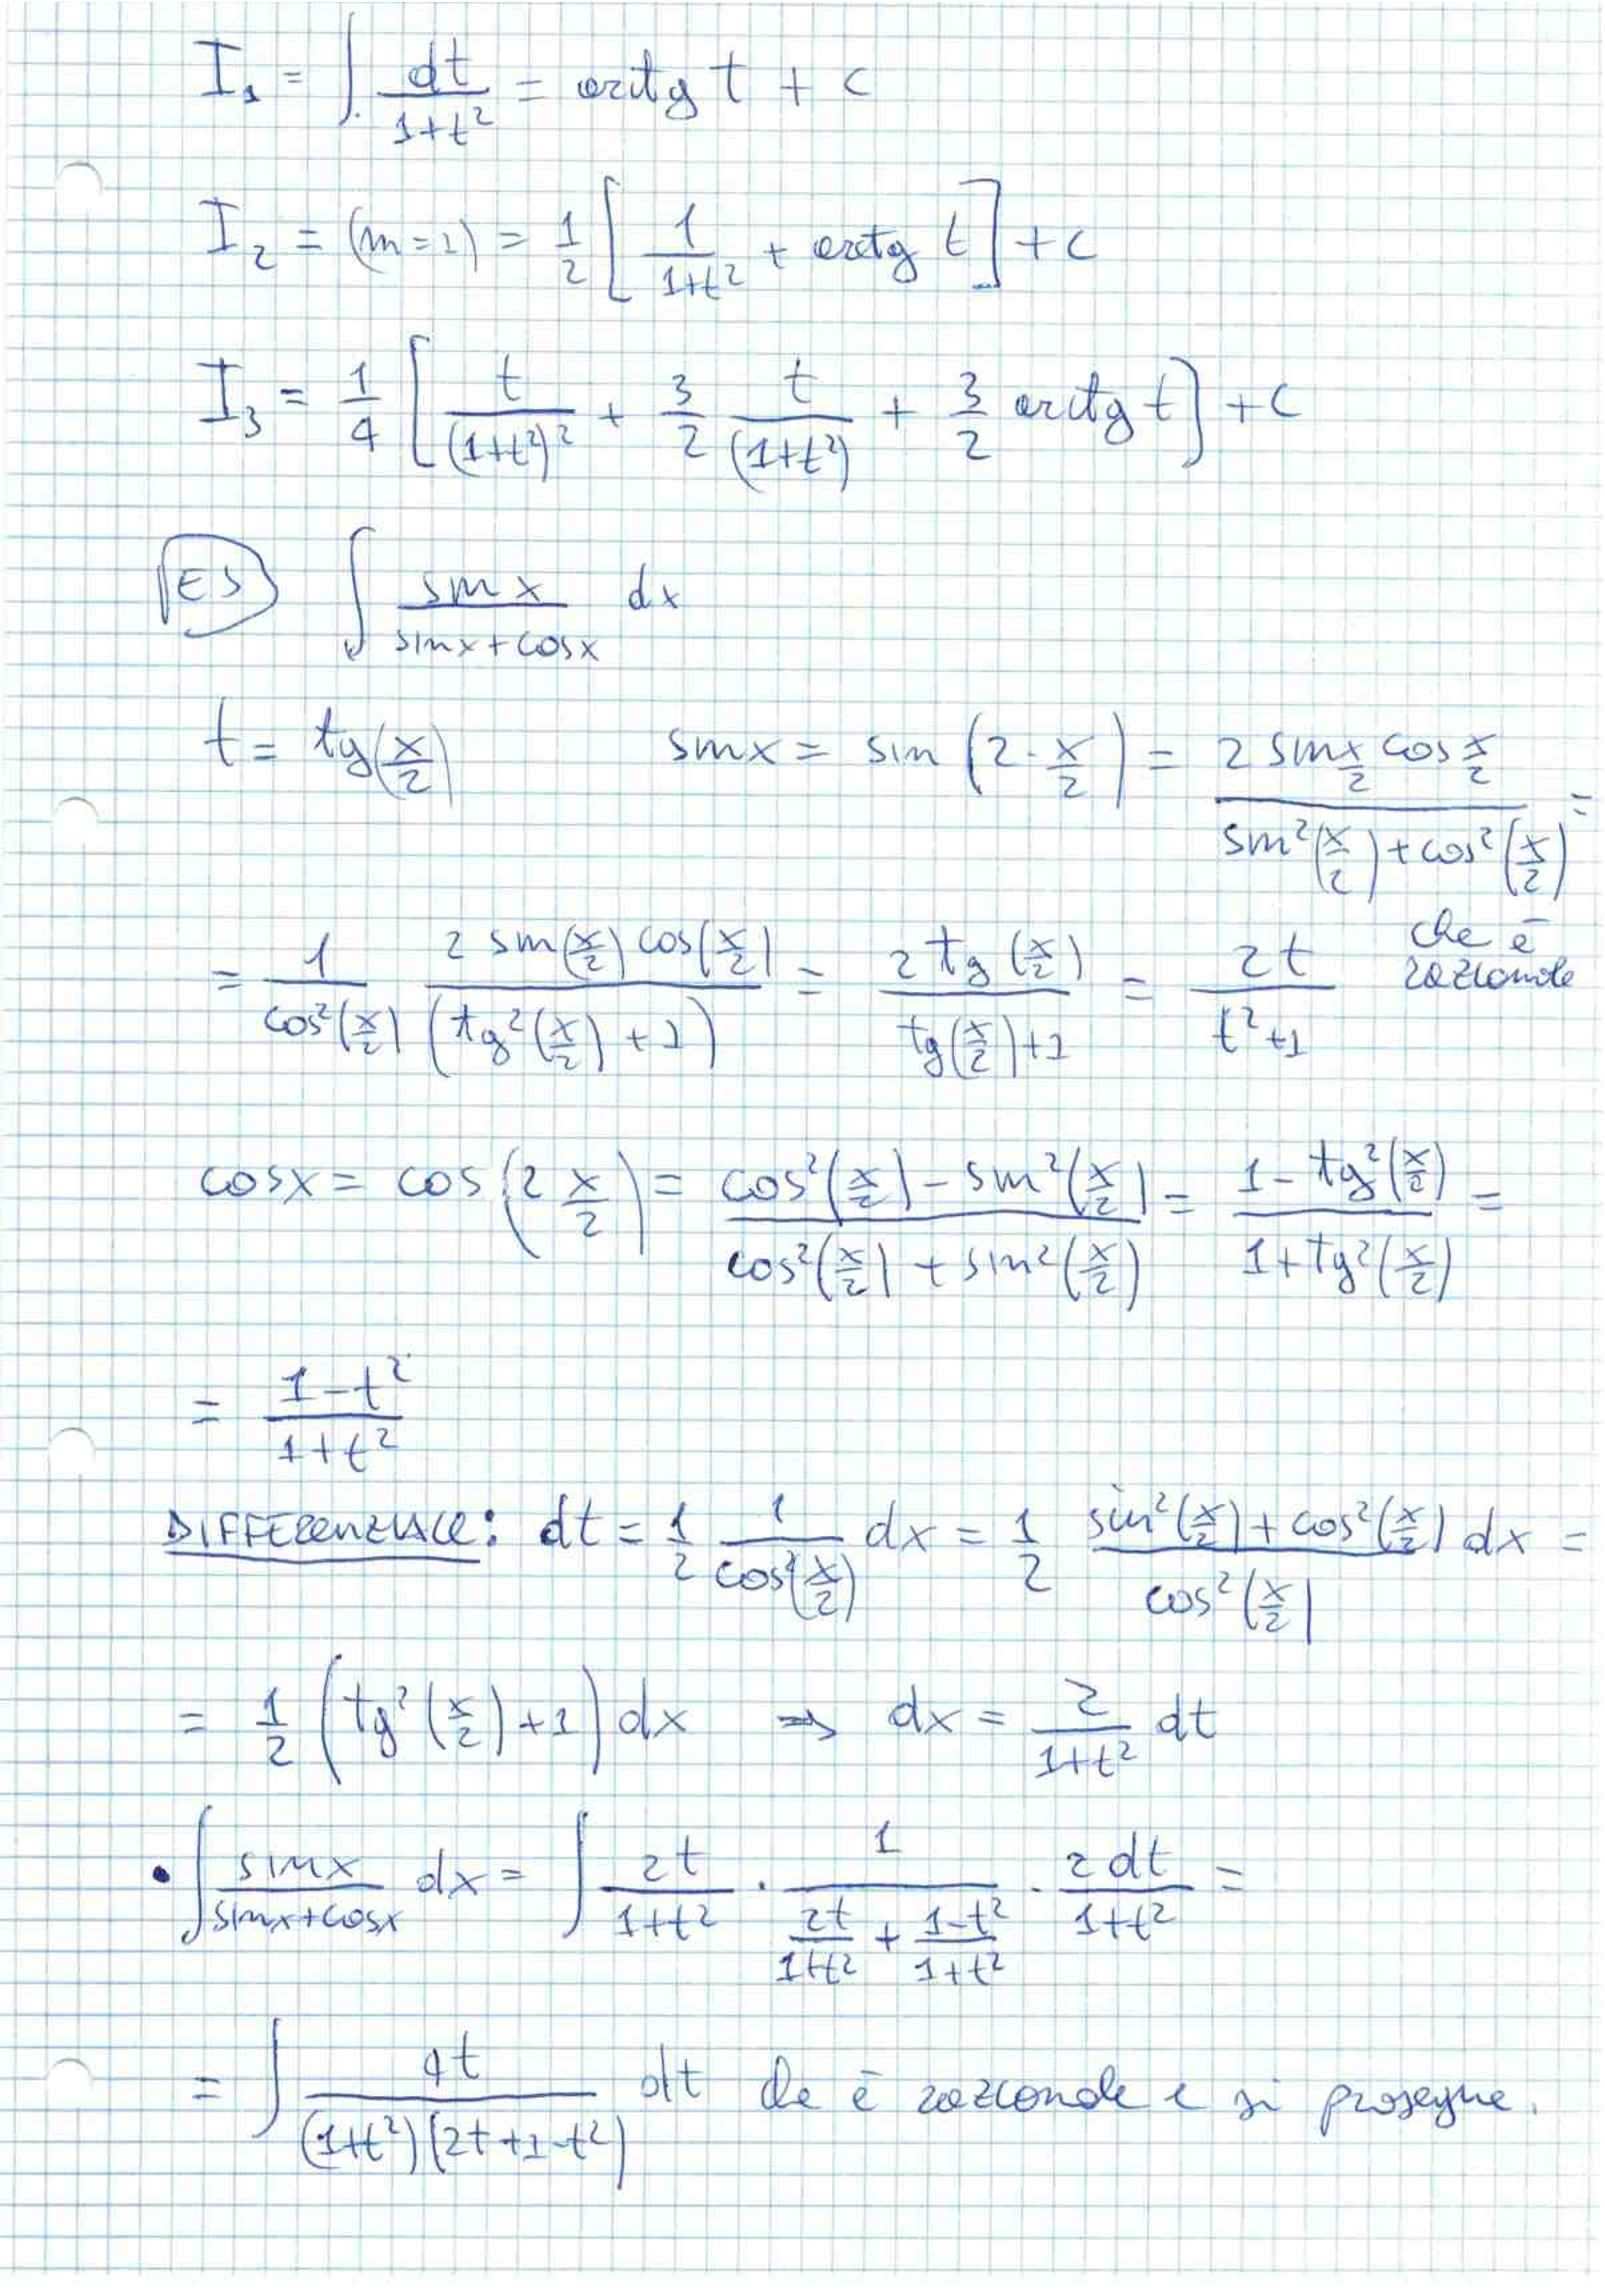 I₁ = ∫ dt/(1+t²) = arctg t + c
I₂ = (m=1) = 1/2 [ 1/(1+t²) + arctg t ] + c
I₃ = 1/4 [ t/(1+t²)² + 3/2 t/(1+t²) + 3/2 arctg t ] + c
ES ∫ sin x/(sin x + cos x) dx
t = tg(x/2) sin x = sin (2·x/2) = (2 sin x/2 cos x/2)/(sin²(x/2) + cos²(x/2)) =
= 1/cos²(x/2) (2 sin(x/2) cos(x/2))/(tg²(x/2) + 1) = (2 tg(x/2))/(tg(x/2)+1) = 2t/(t²+1) che è razionale
cos x = cos (2 x/2) = (cos²(x/2) - sin²(x/2))/(cos²(x/2) + sin²(x/2)) = (1 - tg²(x/2))/(1 + tg²(x/2)) =
= (1-t²)/(1+t²)
DIFFERENZIALE: dt = 1/2 1/cos²(x/2) dx = 1/2 (sin²(x/2) + cos²(x/2))/cos²(x/2) dx =
= 1/2 (tg²(x/2) + 1) dx ⇒ dx = 2/(1+t²) dt
• ∫ sin x/(sin x + cos x) dx = ∫ 2t/(1+t²) · 1/(2t/(1+t²) + (1-t²)/(1+t²)) · 2 dt/(1+t²) =
= ∫ 4t/((1+t²)(2t+1-t²)) dt che è razionale e si prosegue.